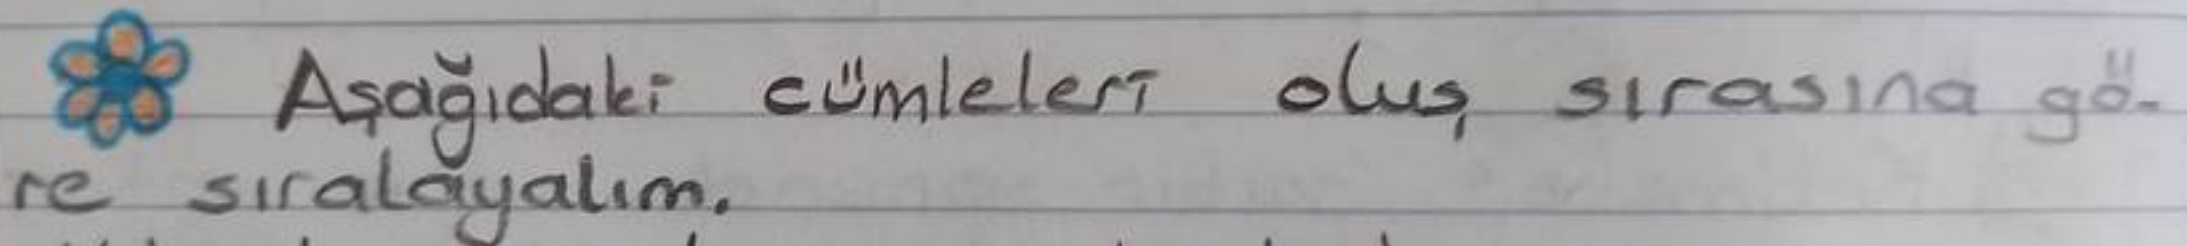 Aşağıdaki cümleleri oluş sırasına gö-
re sıralayalım.